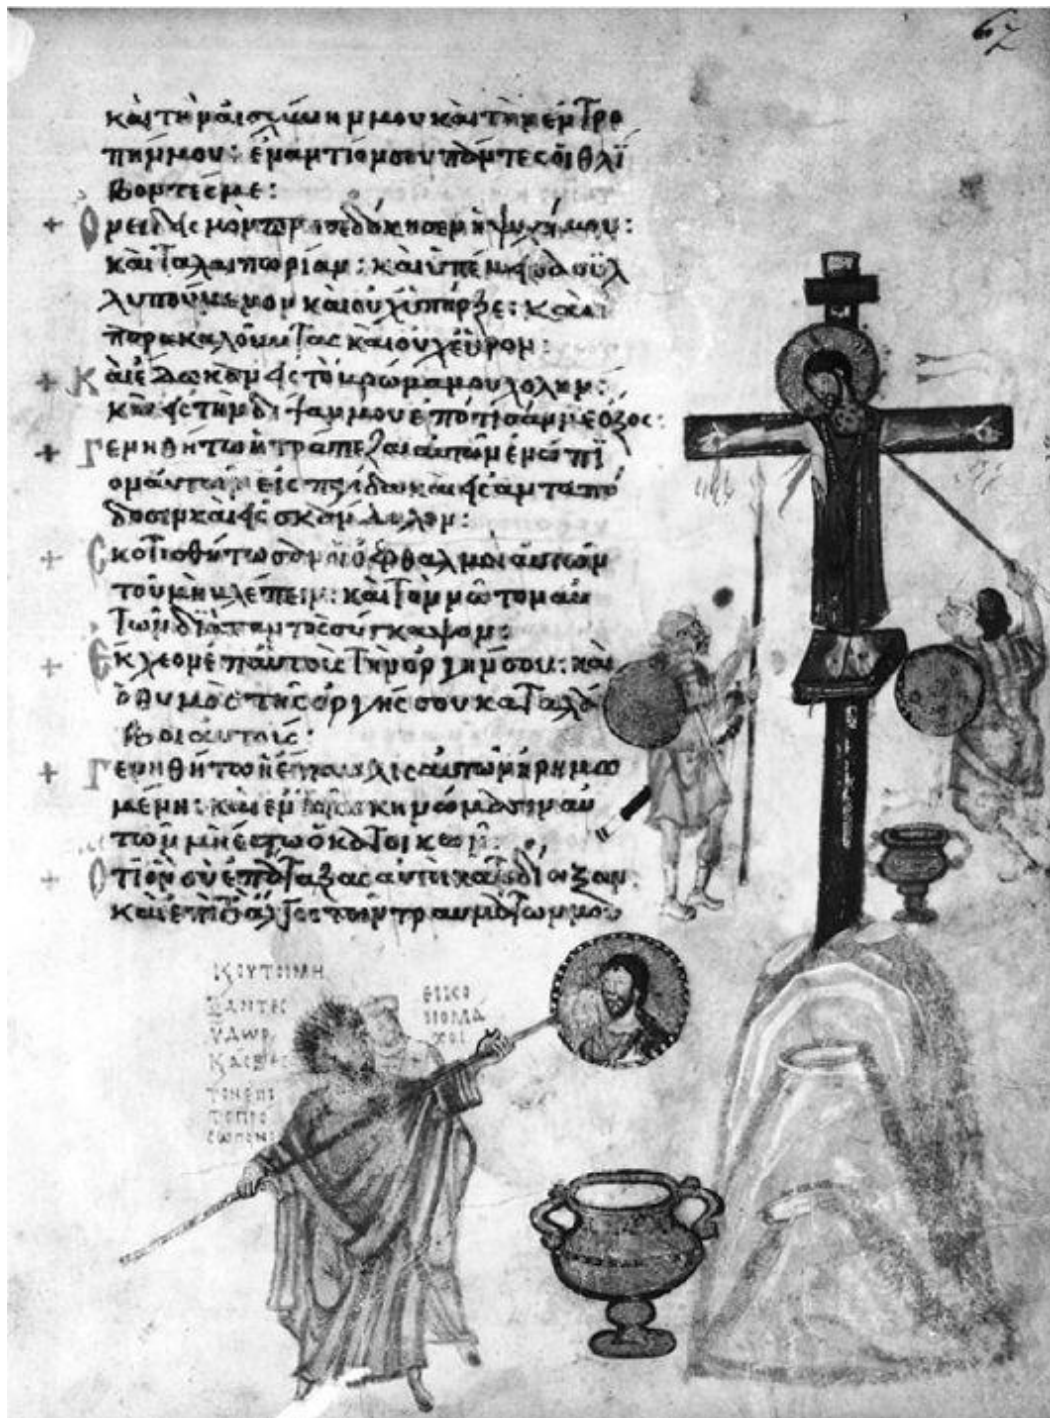 67
καὶ τὴν αἰσχύνην μου καὶ τὴν ἐντρο
πήν μου: ἐναντίον σου πάντες οἱ θλί
βοντές με:
Ὀνειδισμὸν προσεδόκησεν ἡ ψυχή μου:
καὶ ταλαιπωρίαν: καὶ ὑπέμεινα συλ
λυπούμενον καὶ οὐχ ὑπῆρξε: καὶ
παρακαλοῦντας καὶ οὐχ εὗρον:
Καὶ ἔδωκαν εἰς τὸ βρῶμά μου χολὴν:
καὶ εἰς τὴν δίψαν μου ἐπότισάν με ὄξος:
Γενηθήτω ἡ τράπεζα αὐτῶν ἐνώπι
ον αὐτῶν εἰς παγίδα καὶ εἰς ἀνταπό
δοσιν καὶ εἰς σκάνδαλον:
Σκοτισθήτωσαν οἱ ὀφθαλμοὶ αὐτῶν
τοῦ μὴ βλέπειν: καὶ τὸν νῶτον αὐ
τῶν διὰ παντὸς σύγκαμψον:
Ἔκχεον ἐπ αὐτοὺς τὴν ὀργήν σου: καὶ
ὁ θυμὸς τῆς ὀργῆς σου καταλά
βοι αὐτούς:
Γενηθήτω ἡ ἔπαυλις αὐτῶν ἠρημω
μένη: καὶ ἐν τοῖς σκηνώμασιν αὐ
τῶν μὴ ἔστω ὁ κατοικῶν:
Ὅτι ὃν σὺ ἐπάταξας αὐτοὶ κατεδίωξαν:
καὶ ἐπὶ τὸ ἄλγος τῶν τραυμάτων μου
Κ ΟΥΤΟΙ ΜΗ
ΞΑΝΤΕΣ
ΥΔΩΡ
ΚΑΙ
ΤΟΝ ΕΠΙ
ΤΟ ΠΡΟ
ΣΩΠΟΝ
ΕΙΚΟ
ΝΟΜΑ
ΧΟΙ